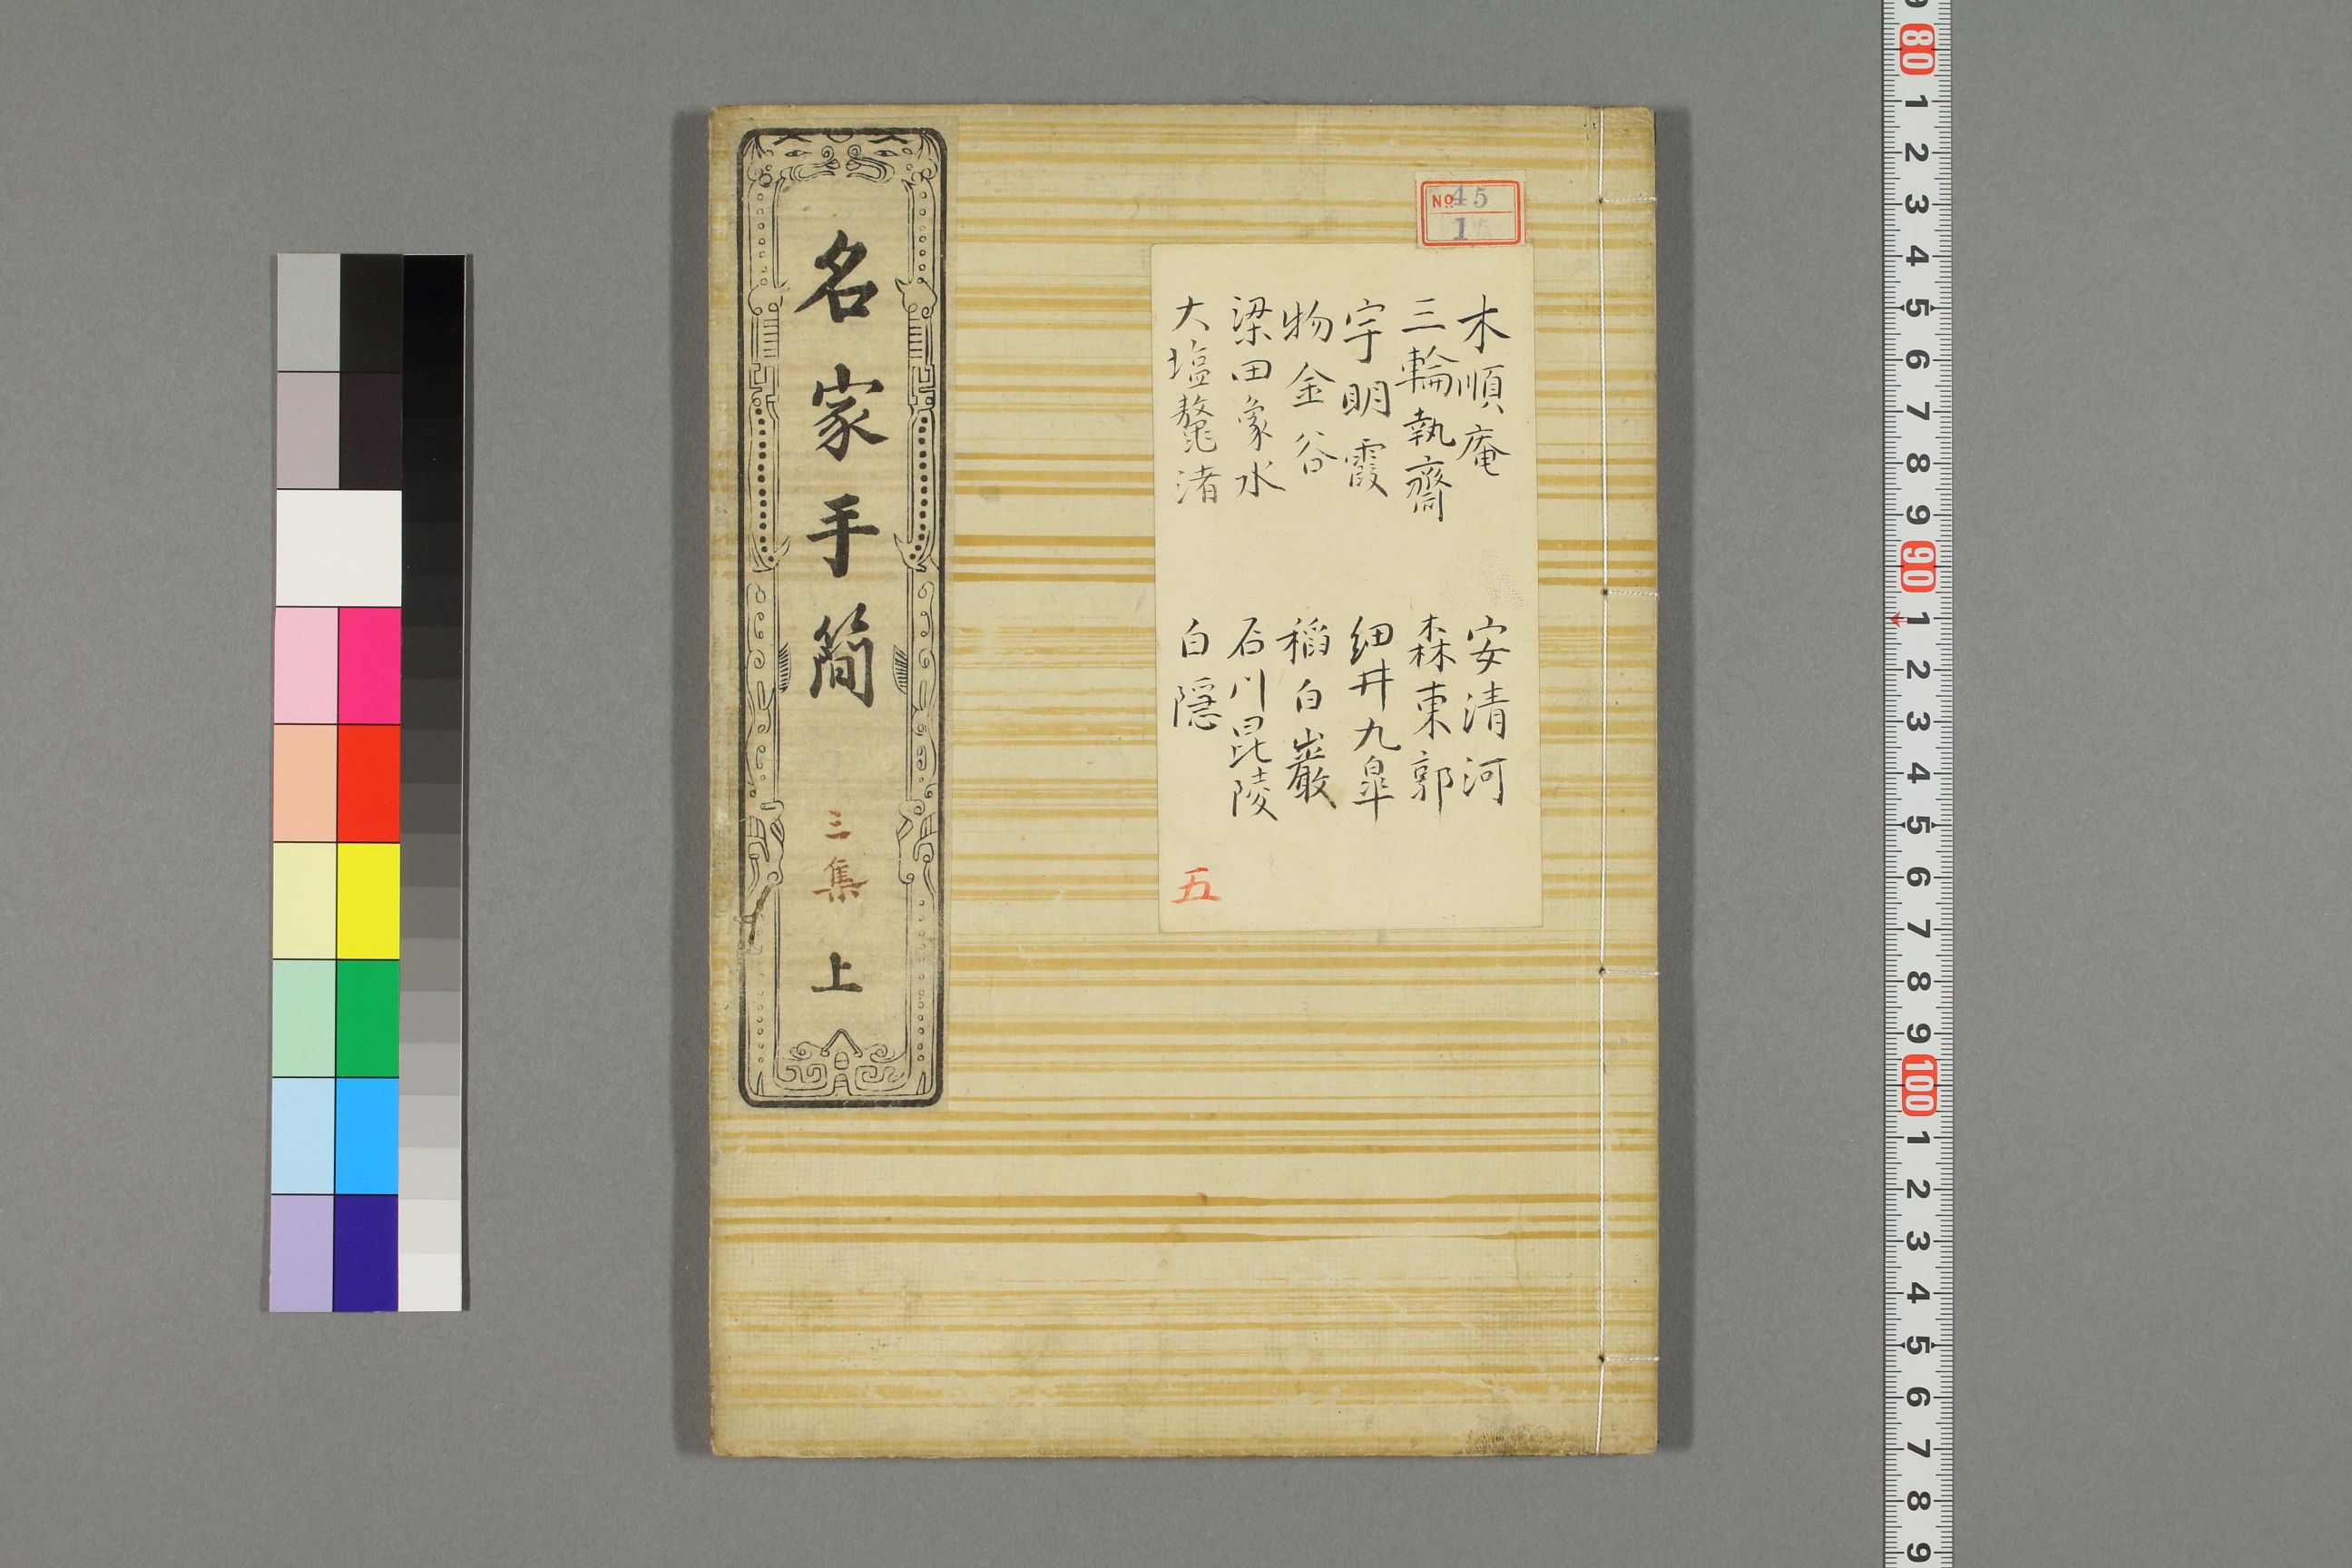 名家手簡 三集 上
No 45
1
木順庵 安清河
三輪執齋 森東郭
宇明霞 細井九皐
物金谷 稻白巖
梁田象水 石川昆陵
大塩鼇渚 白隠
五
9 80 1 2 3 4 5 6 7 8 9 90 1 2 3 4 5 6 7 8 9 100 1 2 3 4 5 6 7 8 9